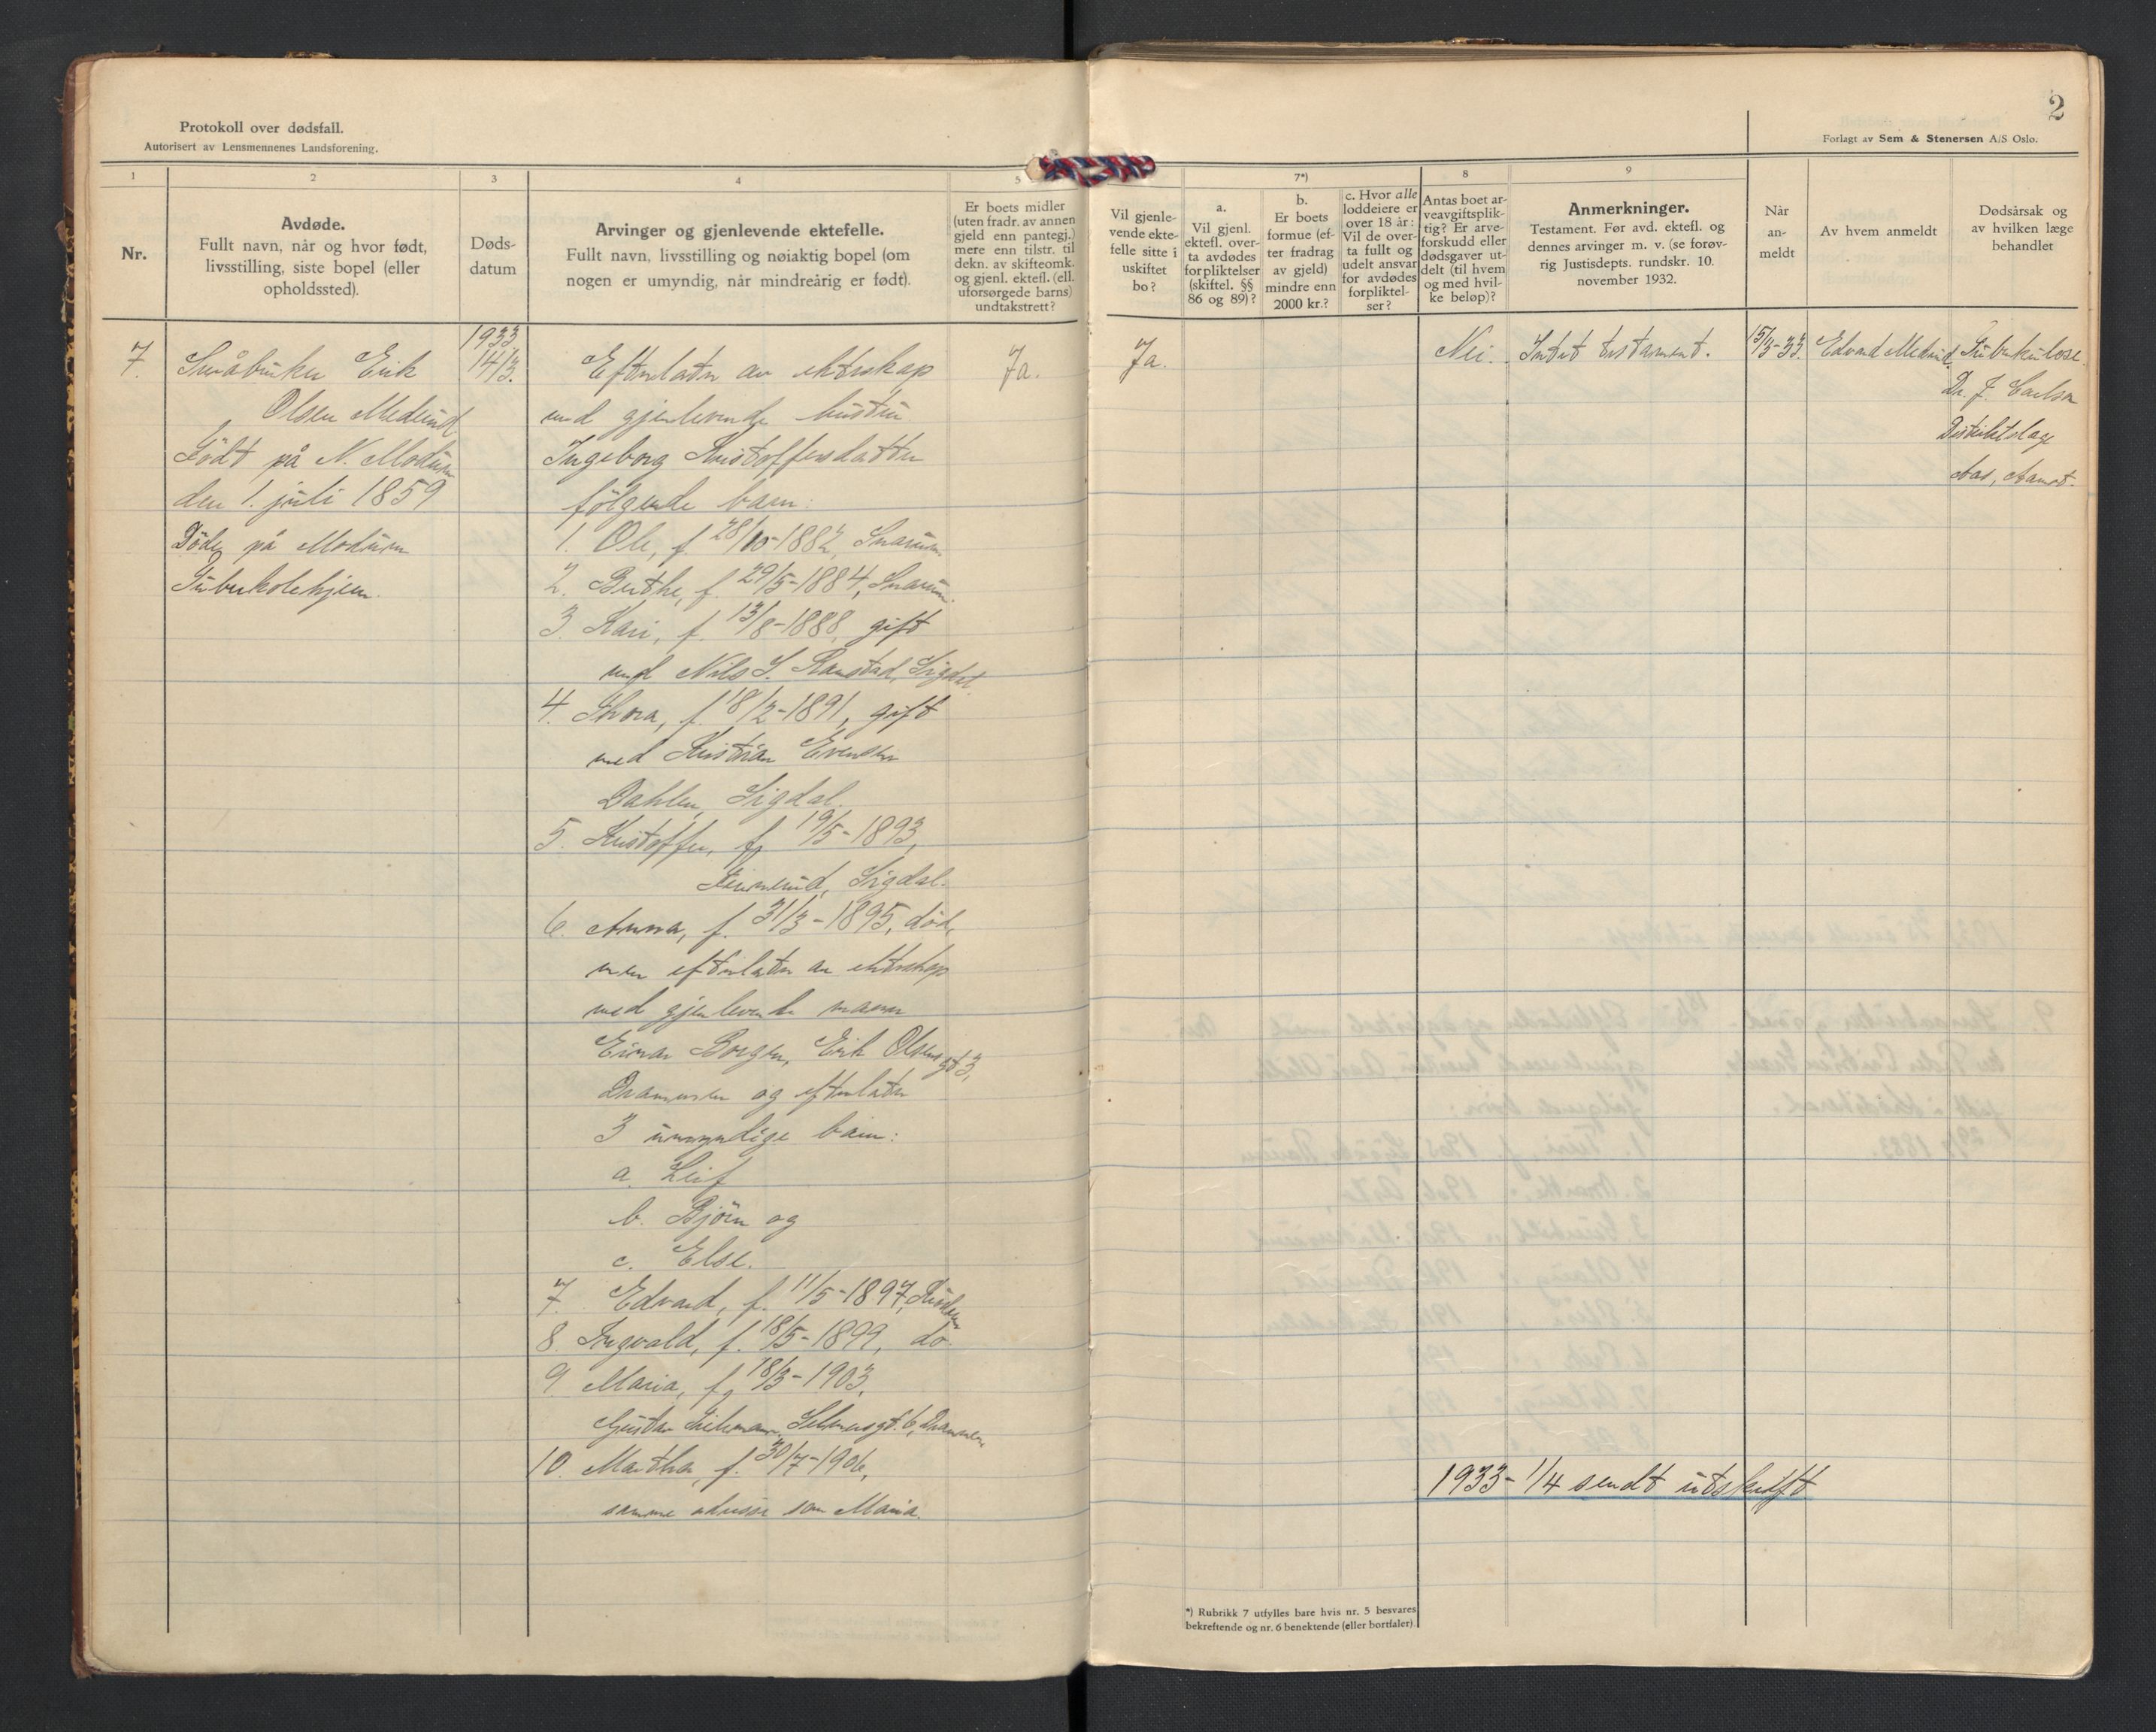 Protokoll over dødsfall.
Autorisert av Lensmennenes Landsforening.
2
Forlagt av Sem & Stenersen A/S Oslo.
1
2
3
4
5
7*)
8
9
Nr.
Avdøde.
Fullt navn, når og hvor født,
livsstilling, siste bopel (eller
opholdssted).
Døds-
datum
Arvinger og gjenlevende ektefelle.
Fullt navn, livsstilling og nøiaktig bopel (om
nogen er umyndig, når mindreårig er født).
Er boets midler
(uten fradr. av annen
gjeld enn pantegj.)
mere enn tilstr. til
dekn. av skifteomk.
og gjenl. ektefl. (ell.
uforsørgede barns)
undtakstrett?
Vil gjenle-
vende ekte-
felle sitte i
uskiftet
bo?
a.
Vil gjenl.
ektefl. over-
ta avdødes
forpliktelser
(skiftel. §§
86 og 89)?
b.
Er boets
formue (ef-
ter fradrag
av gjeld)
mindre enn
2000 kr.?
c. Hvor alle
loddeiere er
over 18 år:
Vil de over-
ta fullt og
udelt ansvar
for avdødes
forpliktel-
ser?
Antas boet ar-
veavgiftsplik-
tig? Er arve-
forskudd eller
dødsgaver ut-
delt (til hvem
og med hvil-
ke beløp)?
Anmerkninger.
Testament. Før avd. ektefl. og
dennes arvinger m. v. (se forøv-
rig Justisdepts. rundskr. 10.
november 1932.
Når
an-
meldt
Av hvem anmeldt
Dødsårsak og
av hvilken læge
behandlet
7.
Småbruker Erik
Olsen Medrud
Født på N. Modum
den 1. juli 1859
Døde på Modum
Tuberkolehjem.
1933
14/3.
Efterlater av ekteskap
med gjenlevende hustru
Ingeborg Kristoffersdatter
følgende barn:
1. Ole, f. 28/10-1882, Snarum
2. Berthe, f. 29/5-1884, Snarum.
3. Kari, f. 13/8-1888, gift
med Nils S. Ramstad, Sigdal
4. Thora, f. 18/2-1891, gift
med Kristian Evensen
Dahlen, Sigdal.
5. Kristoffer, f. 19/5-1893,
Sigdal.
6. Anna, f. 31/3-1895, død,
men efterlater av ekteskap
med gjenlevende mann
Einar Borgen, Erik Olsens gt 3,
Drammen og efterlater
3 umyndige barn:
a. Leif
b. Bjørn og
c. Else.
7. Edvard, f. 11/5-1897,
8. Ingvald, f. 18/5-1899, do.
9. Maria, f. 18/3-1903,
Gustav 6, Drammen
10. Martha, f. 30/7-1906,
samme adresse som Maria.
Ja.
Ja.
Nei.
Intet testament.
15/3-33.
Edvard Medrud
Tuberkulose.
Dr. J. Carlsen
Distriktslæge
Aas, Aamot.
1933- 1/4 sendt utskrift
*) Rubrikk 7 utfylles bare hvis nr. 5 besvares
bekreftende og nr. 6 benektende (eller bortfaler).